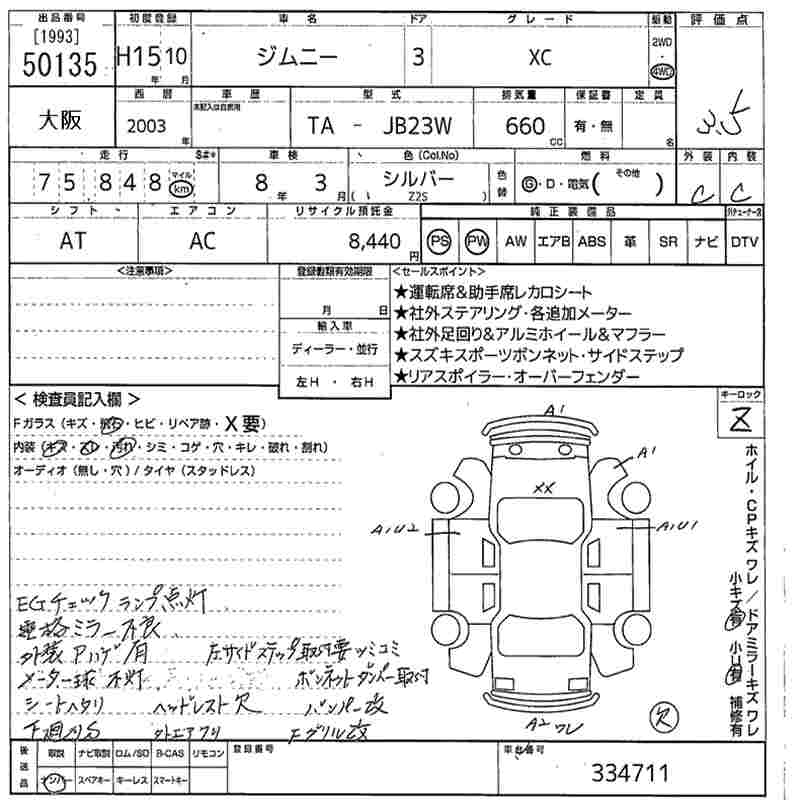 出品番号 初度登録 車名 ドア グレード 駆動 評価点
[1993]
50135 H15 10 ジムニー 3 XC 2WD・4WD
年 月
大阪 西暦 車歴 型式 排気量 保証書 定員
未記入は自家用
2003 年 TA - JB23W 660 cc 有・無 名 3.5
走行 S#* 車検 色(Col.No) 燃料 外装 内装
75848 マイル km 8年 3月 シルバー 色替 G・D・電気( その他 ) C C
( Z2S )
シフト エアコン リサイクル預託金 純正装備品
AT AC 8,440円 PS PW AW エアB ABS 革 SR ナビ DTV
<注意事項> 登録書類有効期限 <セールスポイント>
月 日
輸入車
ディーラー・並行
左H・右H
★運転席&助手席レカロシート
★社外ステアリング・各追加メーター
★社外足回り&アルミホイール&マフラー
★スズキスポーツボンネット・サイドステップ
★リアスポイラー・オーバーフェンダー
<検査員記入欄> キーロック
Fガラス(キズ・飛石・ヒビ・リペア跡・X要)
内装(キズ・スレ・汚れ・シミ・コゲ・穴・キレ・破れ・割れ)
オーディオ(無し・穴)/タイヤ(スタッドレス)
A1
A1
XX
A1U2
A1U1
A2ワレ
欠
ホイル・CPキズワレ/ドアミラーキズワレ
小キズ有 小U有 補修有
EGチェックランプ点灯
ミラー不良
外装アハゲ有 左サイドステップ取付要ツミコミ
メーター球不灯 ボンネットダンパー取付
シートヘタリ ヘッドレスト欠 バンパー改
下廻りS 外エアクリ Fグリル改
後送品 取説 ナビ取説 ロム/SD B-CAS リモコン 登録番号 車台番号
ナンバー スペアキー キーレス スマートキー
334711